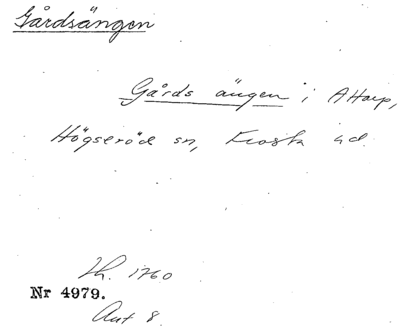 Gårdsängen
Gårds ängen i Attarp,
Högseröd sn, Frosta hd.
Lh. 1760
Nr 4979.
Akt 8.